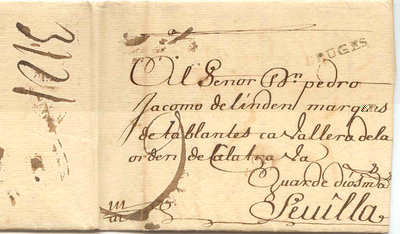 BRUGES
Al Señor Dn pedro
Jacome de linden marques
de tablantes cavallero de la
orden de Calatrava
Guarde dios ms as
Sevilla